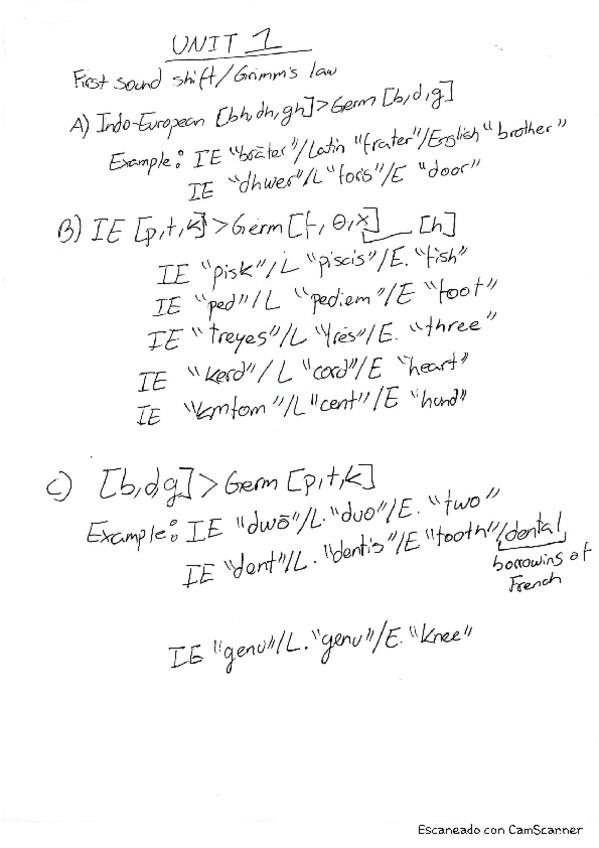 UNIT 1
First sound shift/Grimm's law
A) Indo-European [bh, dh, gh] > Germ [b, d, g]
Example: IE "brāter"/Latin "frater"/English "brother"
IE "dhwer"/L "foris"/E "door"
B) IE [p, t, k] > Germ [f, θ, x] [h]
IE "pisk"/L "piscis"/E. "fish"
IE "ped"/L "pediem"/E "foot"
IE "treyes"/L "trēs"/E. "three"
IE "kerd"/L "cord"/E "heart"
IE "kmtom"/L "cent"/E "hund"
C) [b, d, g] > Germ [p, t, k]
Example: IE "dwō"/L. "duo"/E. "two"
IE "dent"/L. "dentis"/E "tooth"/dental
borrowins of
French
IE "genu"/L. "genu"/E. "knee"
Escaneado con CamScanner